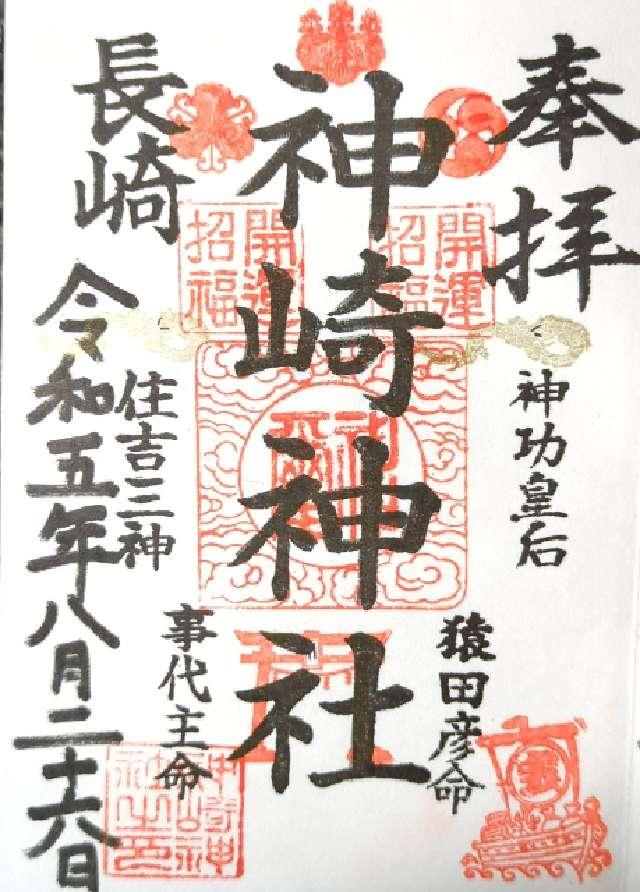 奉拝
神功皇后
猿田彦命
神崎神社
開運招福
開運招福
事代主命
住吉三神
長崎
令和五年八月二十六日